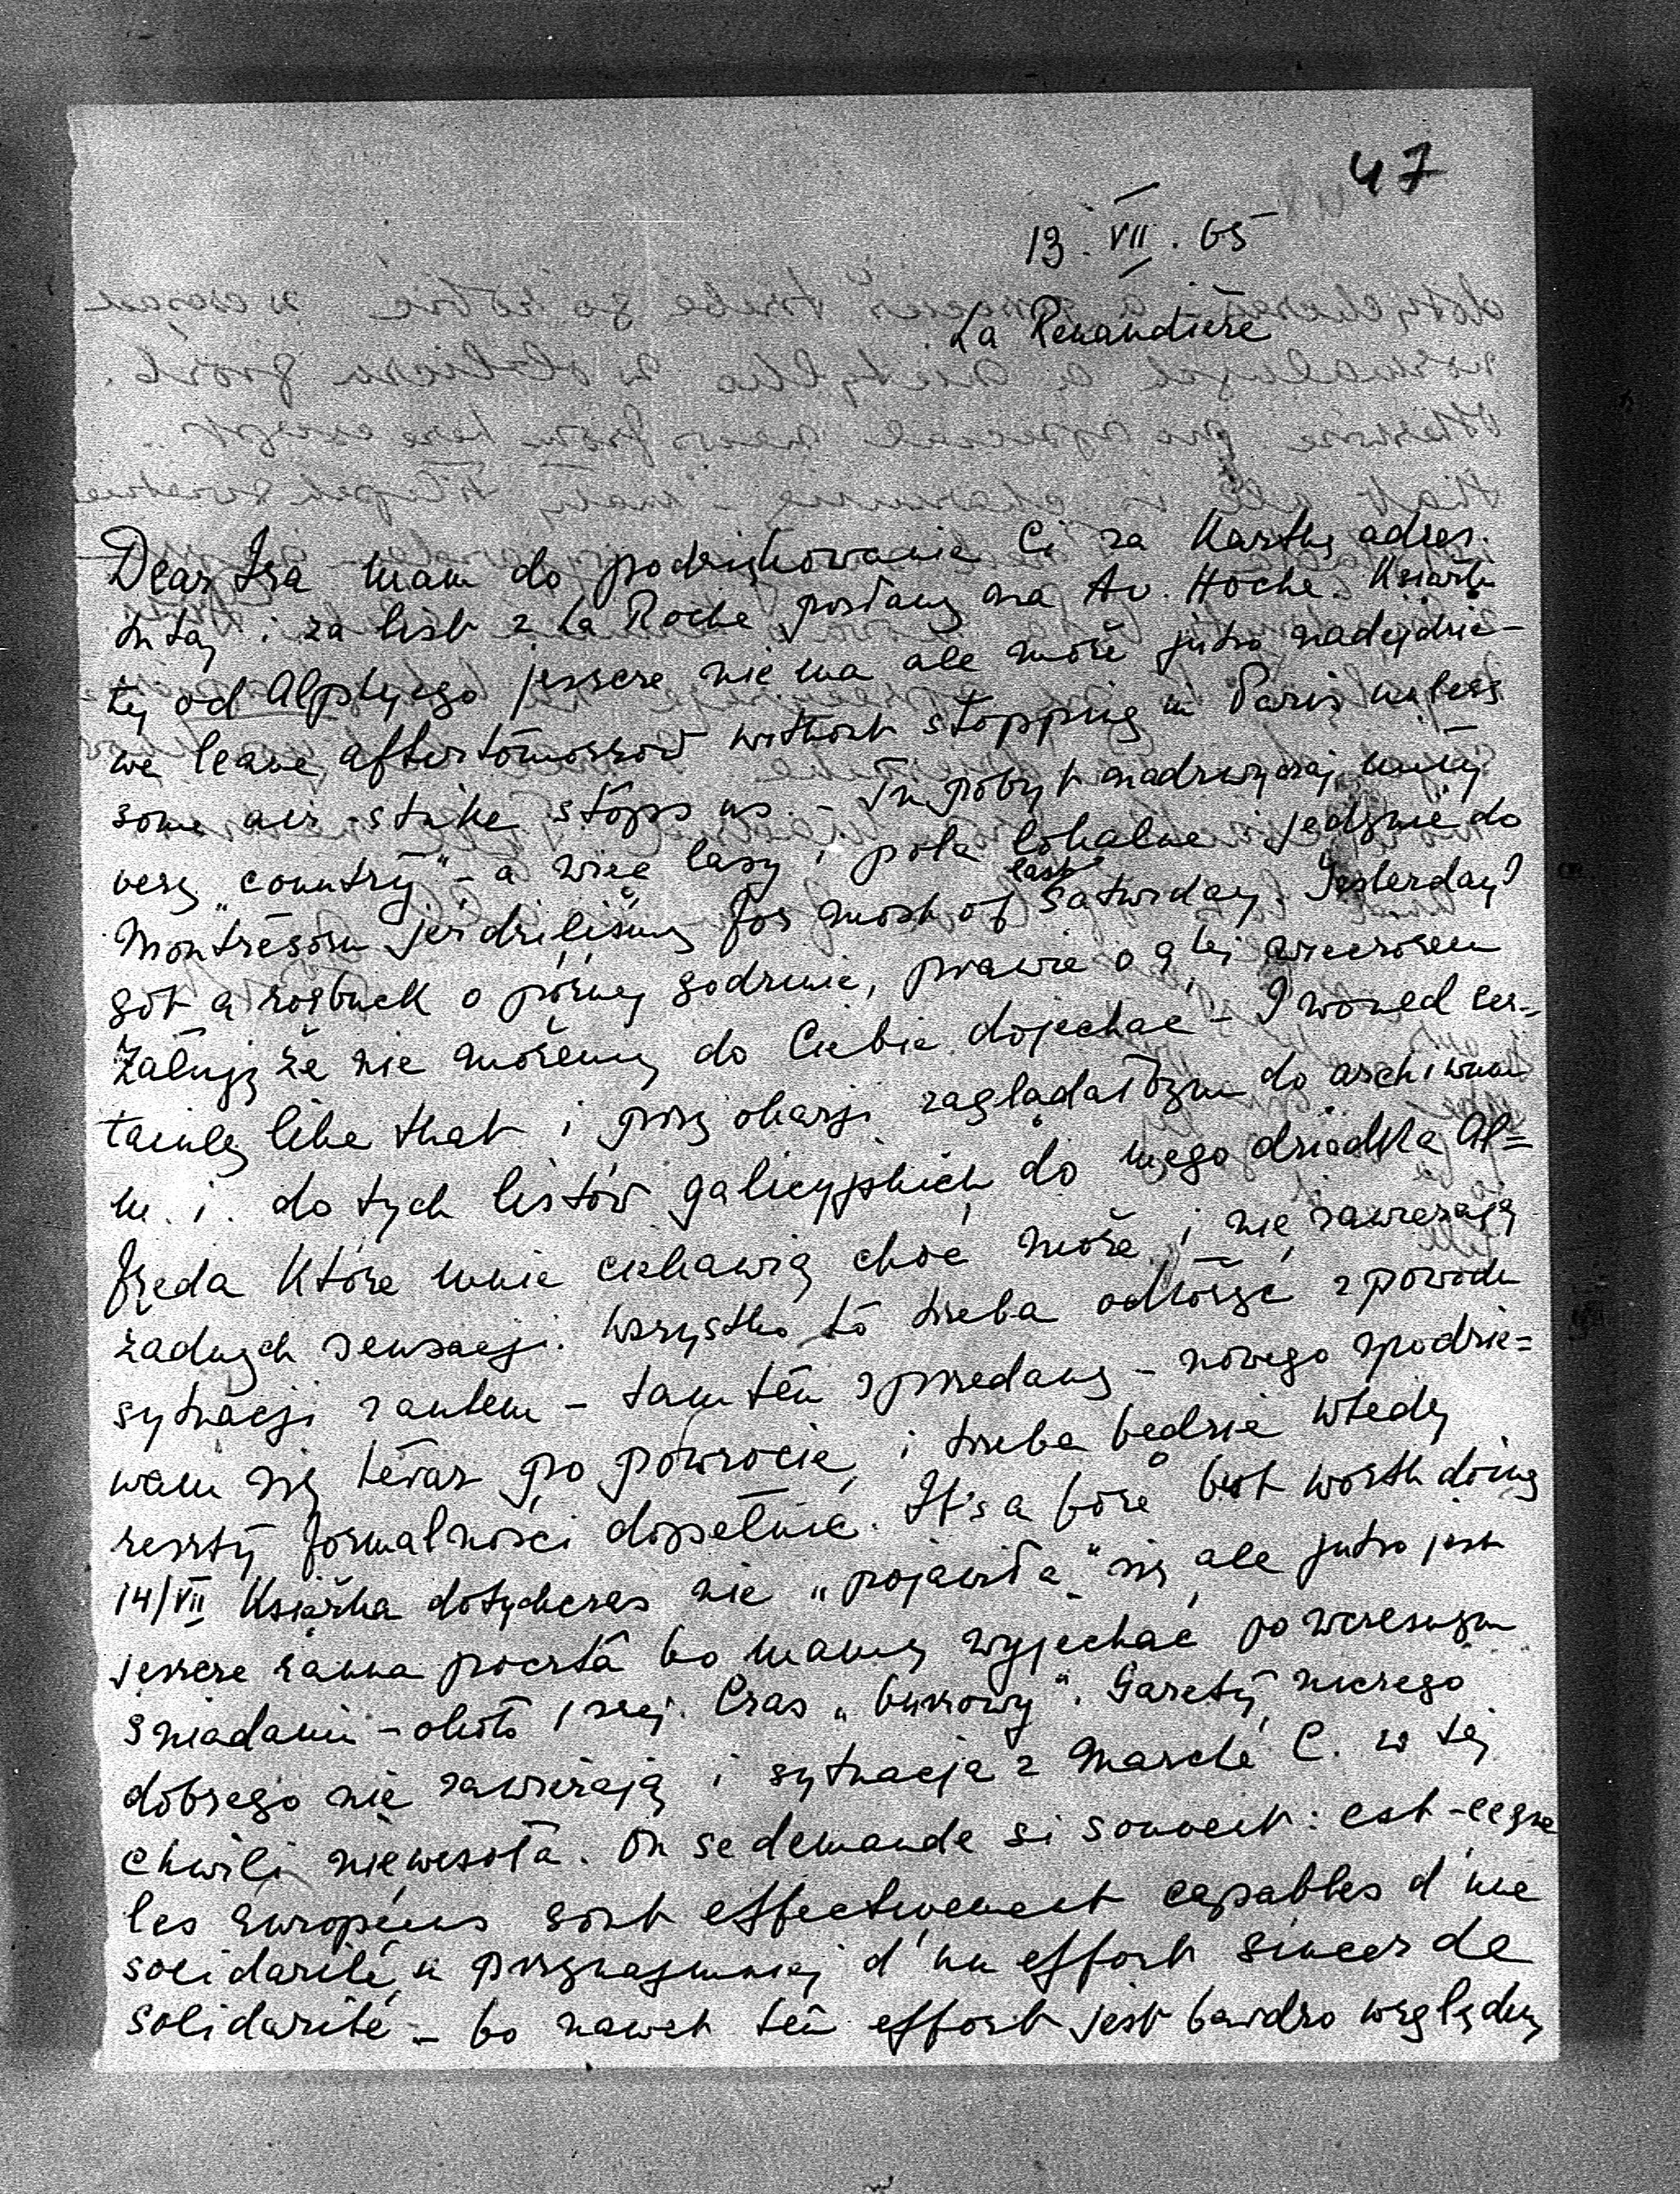 47
13. VII. 65
La Renaudière
Dear Iza mam do podziękowanie Ci za Kartkę adres.
tutaj i za list z La Roche posłany na Av. Hoche. Książki
tej od Alphyego jeszcze nie ma ale może jutro nadejdzie –
we leave aftertomorrow without stopping in Paris unless
some air-strike stops us. – Tu pobyt nadzwyczaj miły
very „country" – a więc lasy i pola lokalne i jedynie do
Montrésoru jeździliśmy for most of last Saturday. Yesterday I
got a roebuck o późnej godzinie, prawie o 9tej wieczorem
Żałuję że nie możemy do Ciebie dojechać – I woued cer-
tainly like that i przy okazji zaglądałbym do archiwum
m. i. do tych listów galicyjskich do mego dziadka Al=
freda które mnie ciekawią choć może i nie zawierają
żadnych sensacji. Wszystko to trzeba odłożyć z powodu
sytuacji z autem – tamten sprzedany – nowego spodzie=
wam się teraz po powrocie i trzeba będzie wtedy
reszty formalności dopełnić. It's a bore but worth doing
14/VII Książka dotychczas nie „pojawiła" się ale jutro jest
jeszcze ranna poczta bo mamy wyjechać po wczesnym
śniadaniu – około 1szej. Czas „byczowy". Gazety niczego
dobrego nie zawierają i sytuacja z Marché C. w tej
chwili niewesoła. On se demande si souvent: est-ceque
les Européens sont effectivement capables d'une
solidarité, u przynajmniej d'un effort sincer de
solidarité – bo nawet ten effort jest bardzo względny